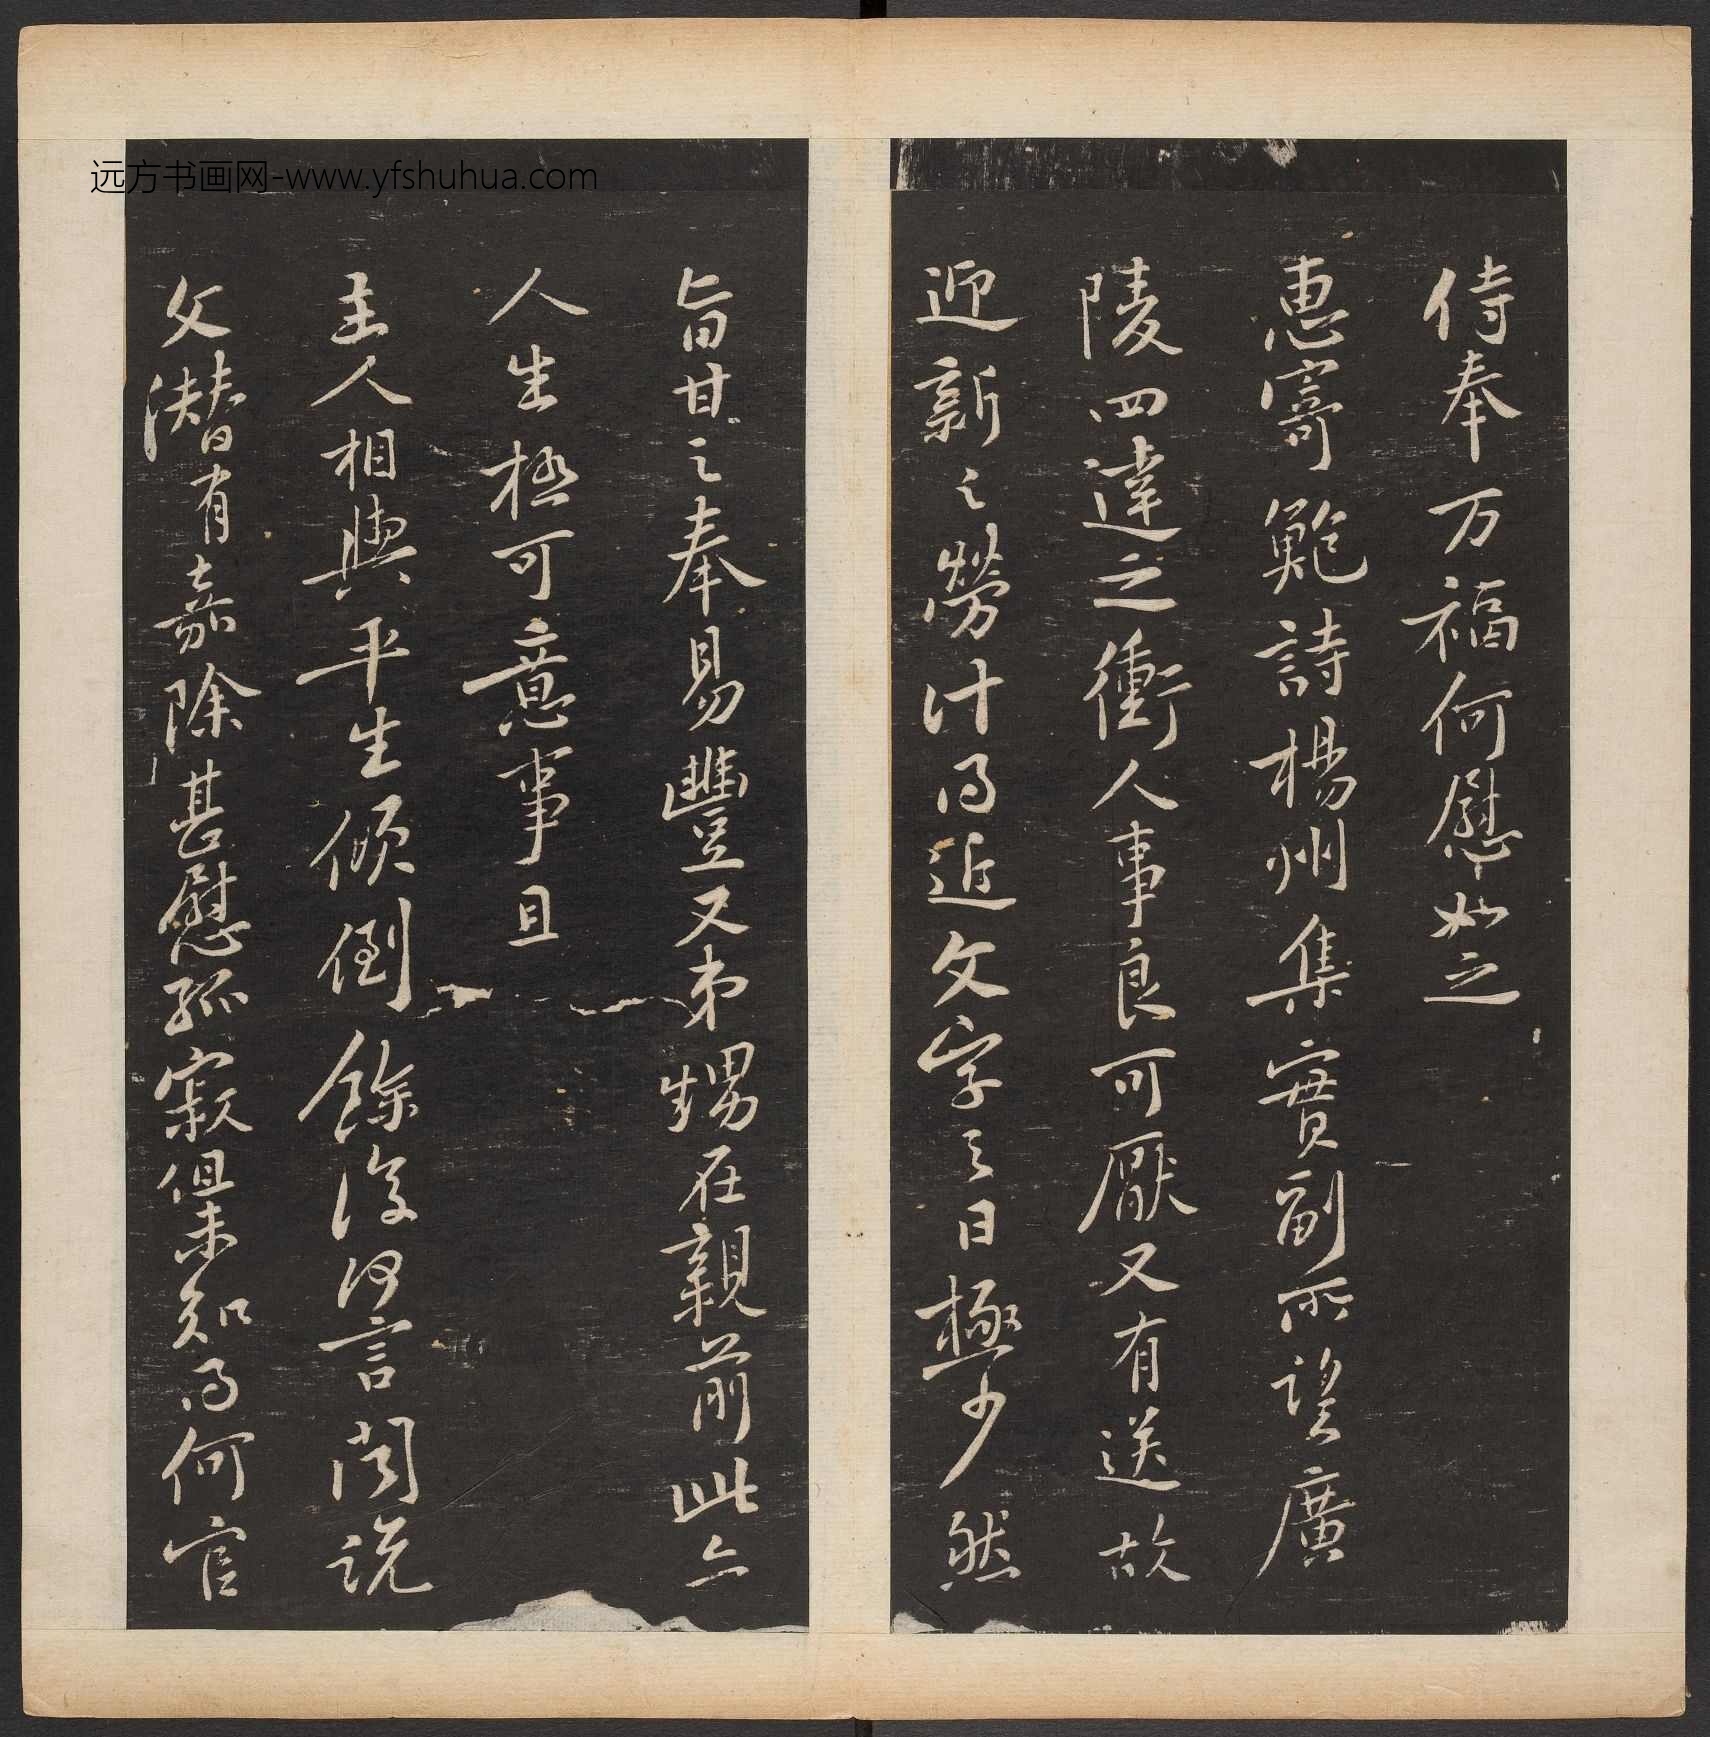 远方书画网-www.yfshuhua.com
侍奉万福何慰如之
惠寄鮑詩楊州集實副所望廣
陵四達之衝人事良可厭又有送故
迎新之勞計得近文字之日極少然
旨甘之奉易豐又弟甥在親前此亦
人生極可意事且
主人相與平生傾倒餘復何言聞説
文潛有嘉除甚慰孤寂但未知得何官